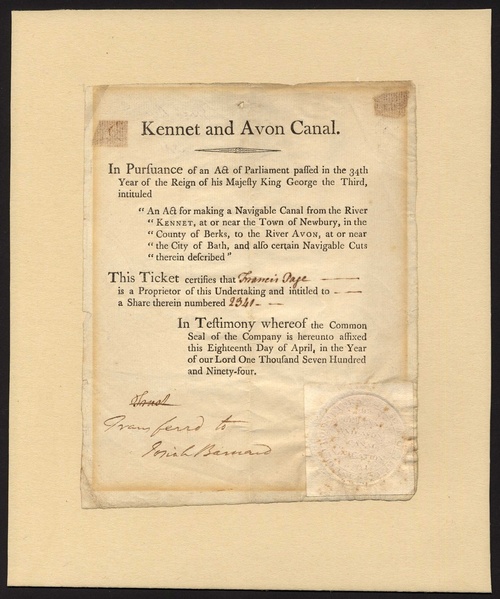 Kennet and Avon Canal.
In Purſuance of an Act of Parliament paſſed in the 34th
Year of the Reign of his Majeſty King George the Third,
intituled
"An Act for making a Navigable Canal from the River
"KENNET, at or near the Town of Newbury, in the
"County of Berks, to the River AVON, at or near
"the City of Bath, and alſo certain Navigable Cuts
"therein deſcribed"
This Ticket certifies that Francis Page
is a Proprietor of this Undertaking and intitled to
a Share therein numbered 2341
In Teſtimony whereof the Common
Seal of the Company is hereunto affixed
this Eighteenth Day of April, in the Year
of our Lord One Thouſand Seven Hundred
and Ninety-four.
Trust
Transferrd to
Josiah Barnard